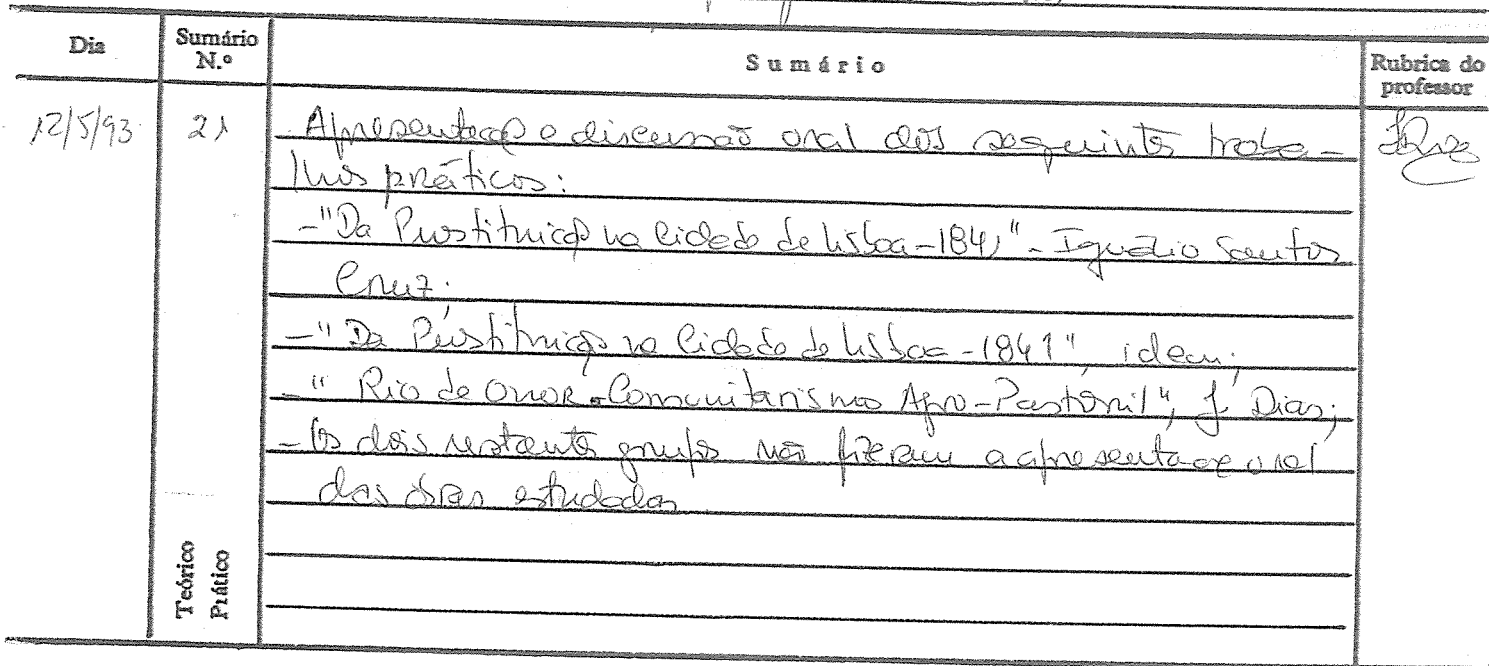 Dia
Sumário N.º
Sumário
Rubrica do professor
12/5/93
21
Apresentação e discussão oral dos seguintes traba-
lhos práticos:
-"Da Prostituição na Cidade de Lisboa-1841"- Ignácio Santos
Cruz.
-"Da Prostituição na Cidade de Lisboa-1841" idem;
-"Rio de Onor-Comunitarismo Agro-Pastoril", J. Dias;
-Os dois restantes grupos não fizeram a apresentação oral
das obras estudadas
Teórico
Prático